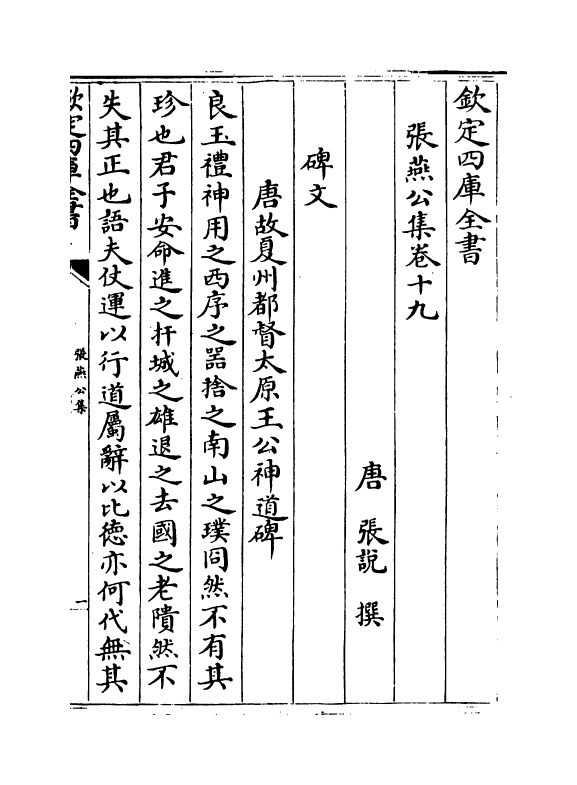 欽定四庫全書
張燕公集卷十九
唐 張說 撰
碑文
唐故夏州都督太原王公神道碑
良玉禮神用之西序之器捨之南山之璞冏然不有其
珍也君子安命進之扞城之雄退之去國之老隤然不
失其正也語夫仗運以行道屬辭以比德亦何代無其
欽定四庫全書
張燕公集
一